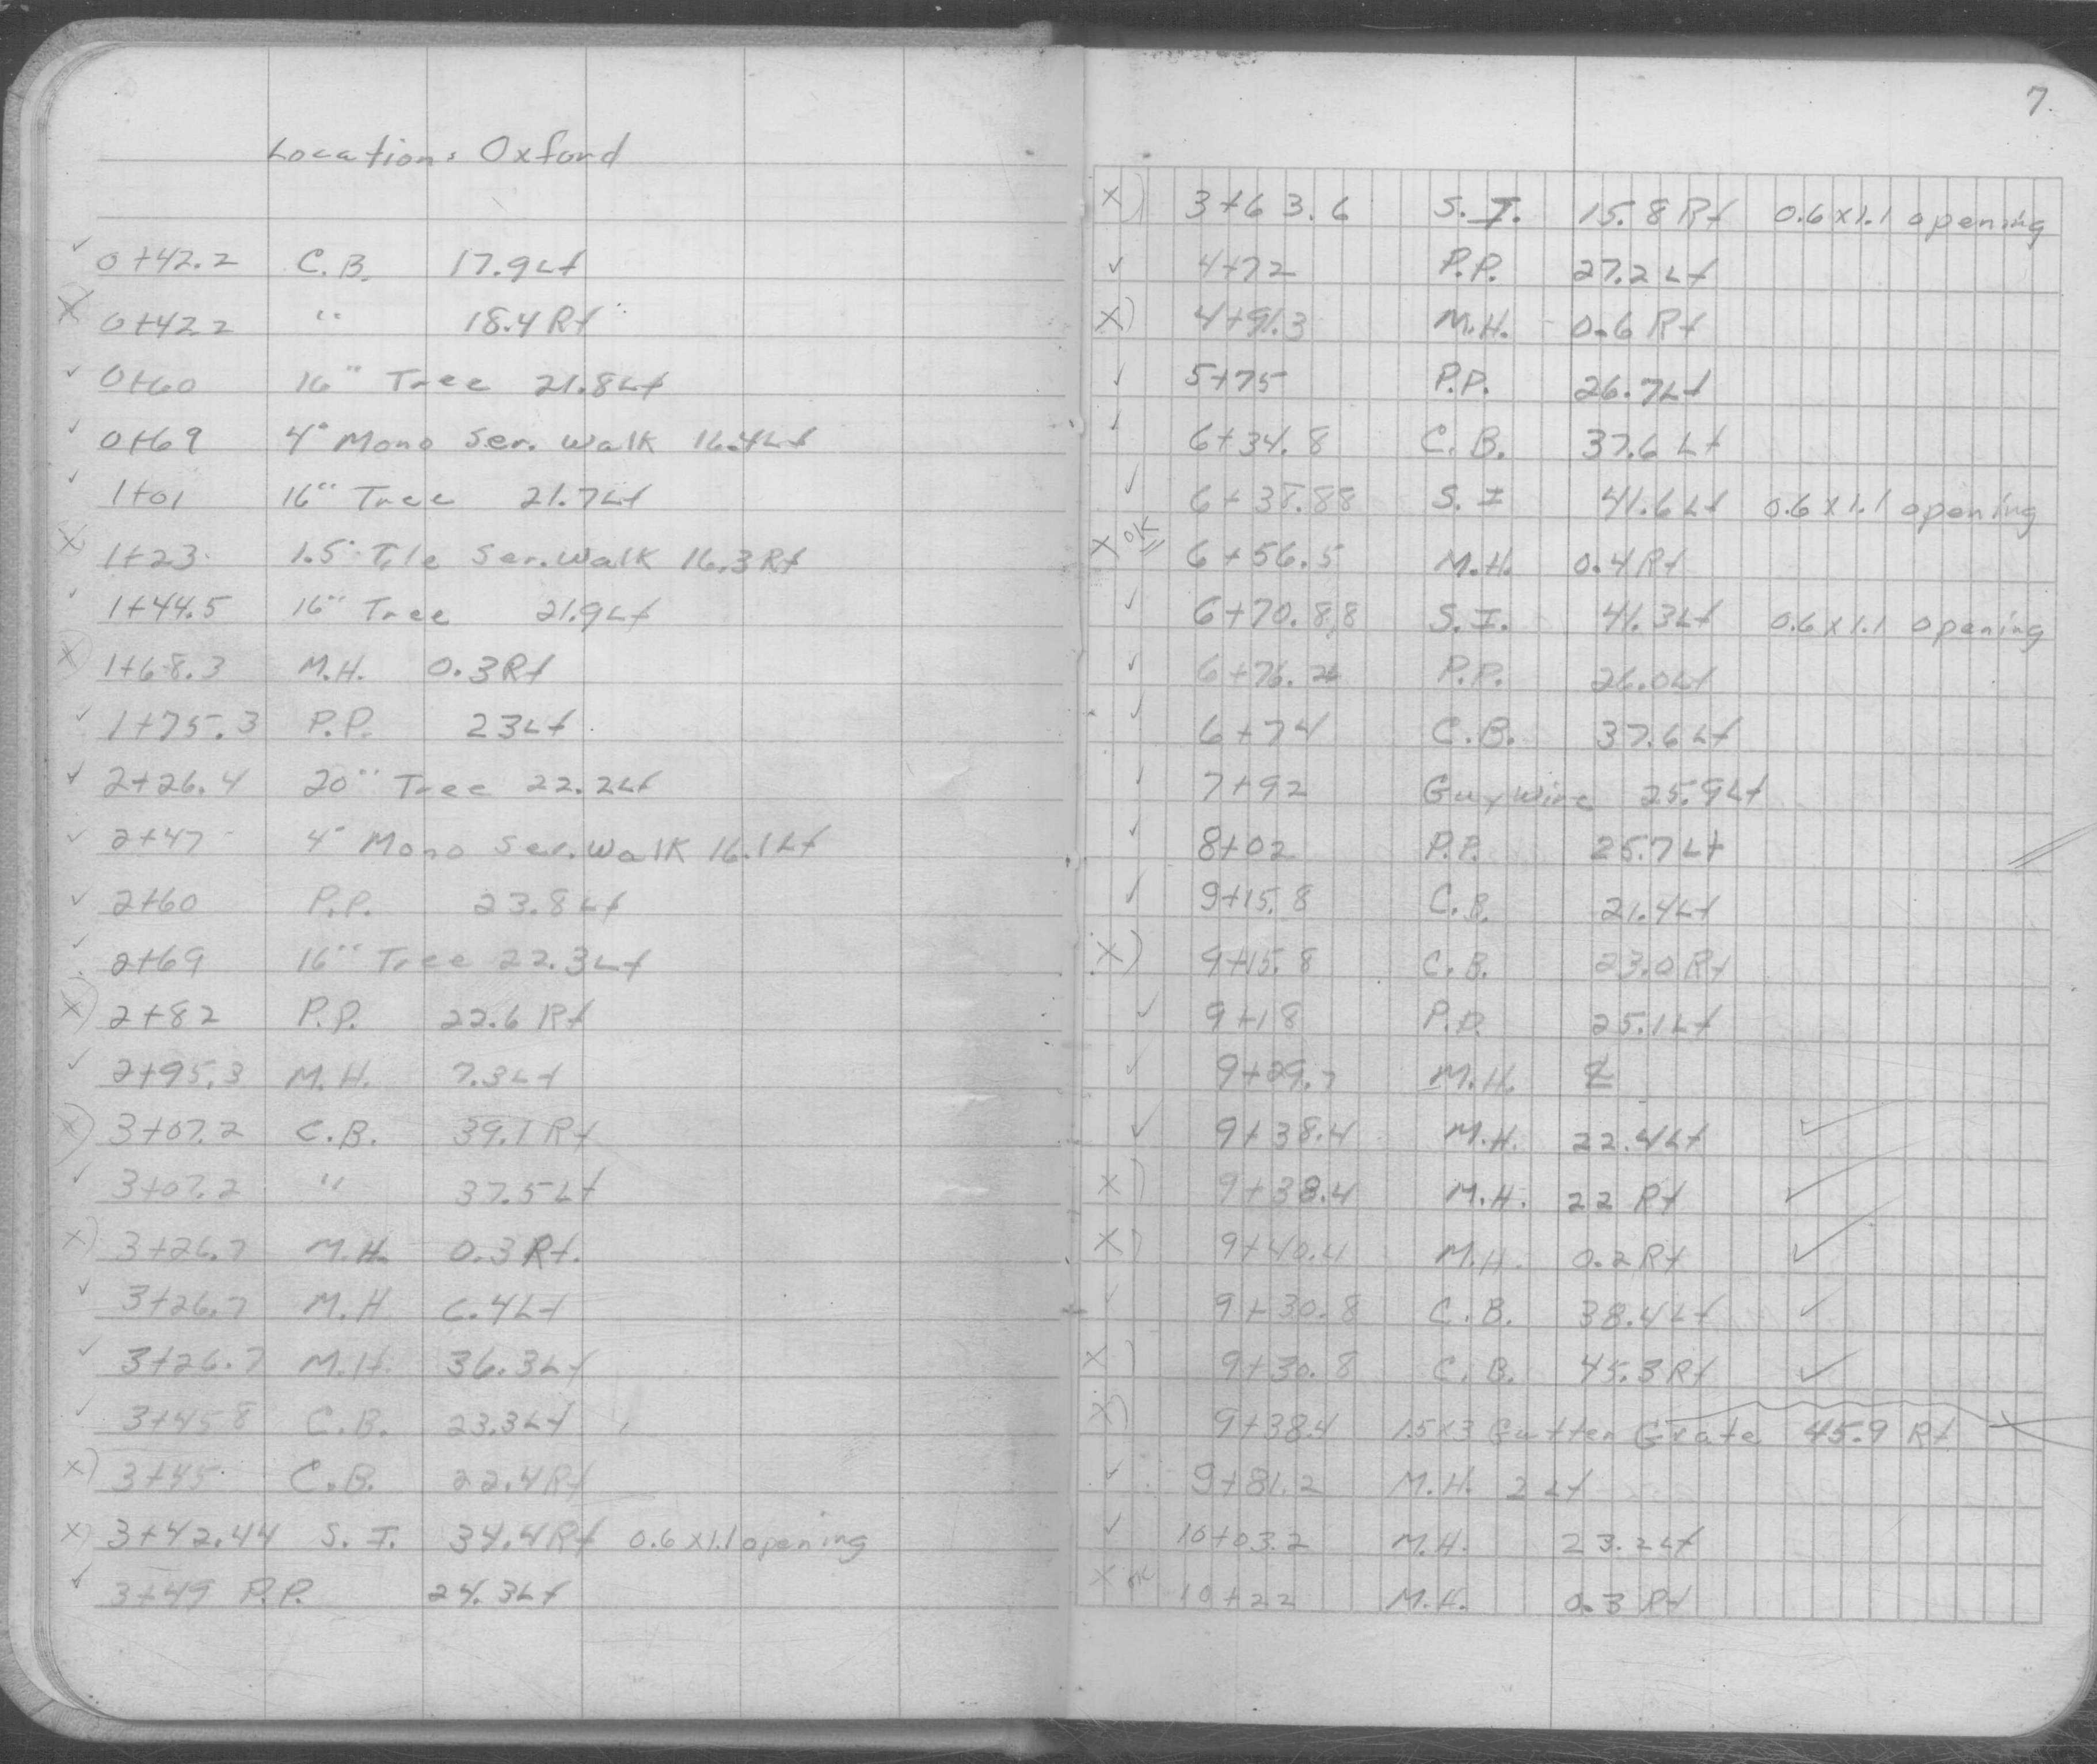 Locations Oxford
✓ 0+42.2 C.B. 17.9Lt
X 0+42.2 " 18.4 Rt
✓ 0+60 16" Tree 21.8Lt
✓ 0+69 4' Mono Ser. Walk 16.4Lt
✓ 1+01 16" Tree 21.7Lt
X 1+23 1.5' Tile Ser. Walk 16.3 Rt
✓ 1+44.5 16" Tree 21.9Lt
X) 1+68.3 M.H. 0.3Rt
✓ 1+75.3 P.P. 23Lt
✓ 2+26.4 20" Tree 22.2Lt
✓ 2+47 4' Mono Ser. Walk 16.1Lt
✓ 2+60 P.P. 23.8Lt
✓ 2+69 16" Tree 22.3Lt
X) 2+82 P.P. 22.6 Rt
✓ 2+95.3 M.H. 7.3Lt
X) 3+07.2 C.B. 39.1 Rt
✓ 3+07.2 " 37.5Lt
X) 3+26.7 M.H. 0.3 Rt.
✓ 3+26.7 M.H 6.4Lt
✓ 3+26.7 M.H. 36.3Lt
✓ 3+45.8 C.B. 23.3Lt
X) 3+45 C.B. 22.4Rt
X) 3+42.44 S.I. 34.4Rt 0.6 x1.1 opening
✓ 3+49 P.P. 24.3Lt
7
X) 3+63.6 S.I. 15.8 Rt 0.6 x1.1 opening
✓ 4+72 P.P. 27.2 Lt
X) 4+91.3 M.H. 0.6 Rt
✓ 5+75 P.P. 26.7Lt
✓ 6+34.8 C.B. 37.6 Lt
✓ S.I 41.6Lt 0.6 x1.1 opening
X OK 6+56.5 M.H. 0.4 Rt
✓ 6+70.88 S.I. 41.3Lt 0.6 x1.1 opening
✓ P.P. 26.0Lt
✓ 6+74 C.B. 37.6Lt
✓ 7+92 Guy Wire 25.9Lt
✓ 8+02 P.P. 25.7Lt
✓ 9+15.8 C.B. 21.4Lt
X) 9+15.8 C.B. 23.0 Rt
✓ 9+18 P.P. 25.1Lt
✓ 9+29.7 M.H. ℄
✓ 9+38.4 M.H. 22.4Lt ✓
X) 9+38.4 M.H. 22 Rt ✓
X) 9+40.4 M.H. 0.2Rt ✓
✓ 9+30.8 C.B. 38.4Lt ✓
X) 9+30.8 C.B. 45.3Rt ✓
X) 9+38.4 1.5x3 Gutter Grate 45.9 Rt
✓ 9+81.2 M.H. 2 Lt
✓ 10+03.2 M.H. 23.2Lt
X OK 10+22 M.H. 0.3 Rt